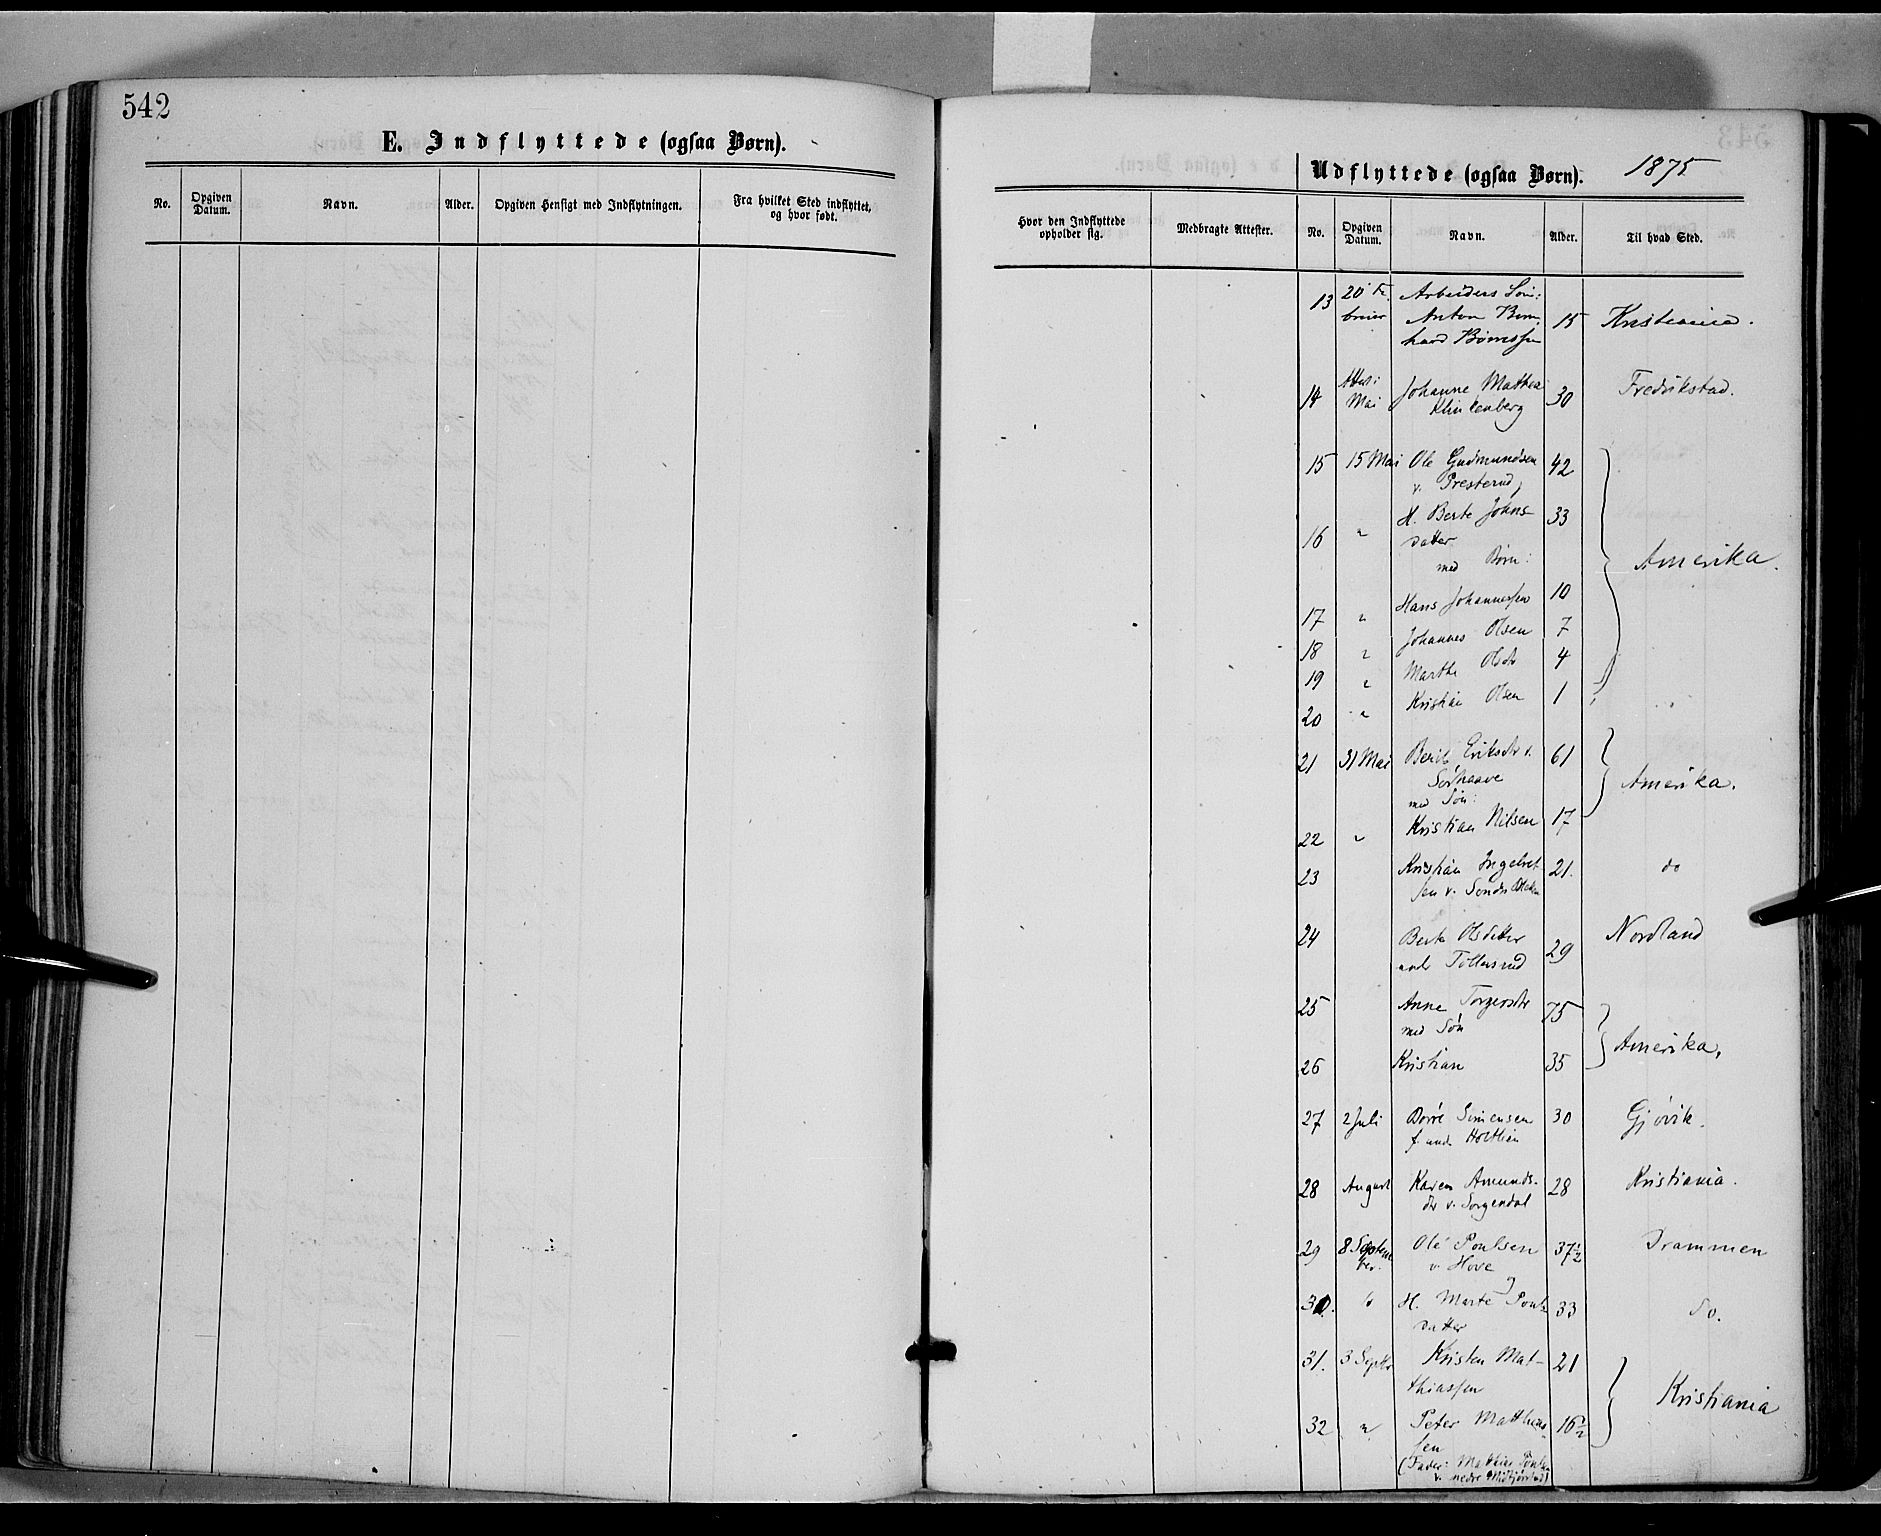 542
E. Indflyttede (ogsaa Børn).
No. Opgiven Datum. Navn. Alder. Opgiven Hensigt med Indflytningen. Fra hvilket Sted indflyttet, og hvor født.
Udflyttede (ogsaa Børn). 1875
Hvor den Indflyttede opholder sig. Medbragte Attester. No. Opgiven Datum. Navn. Alder. Til hvad Sted.
13 Arbeiders Søn:
Anton 15 Kristiania.
14 Mai Johanne Mathea 30 Fredrikstad.
Klinkenberg
15 15 Mai Ole Gudmundsen 42
v. Presterud,
16 " H. Berte Johns- 33
datter
med Børn: Amerika.
17 " Hans Johannessen 10
18 " Johannes Olsen 7
19 " Marthe Olsdtr 4
20 " Kristian Olsen 1
21 31 Mai Berit Eriksdtr v. 61
Sørhaave
med Søn: Amerika.
22 " Kristian Nilsen 17
23 Kristian Ingebret- 21. do
sen v.
24 Berte Olsdatter 29 Nordland
under Tollersrud
25 Anne Torgersdtr 75
med Søn Amerika.
26 Kristian 35
27 2 Juli Børre Simensen 30 Gjøvik.
f. under Holtlien
28 August Karen Amunds- 28 Kristiania.
dtr v. Sorgendal
29 8 Septem Ole Poulsen 37½ Drammen
ber. v. Hove
30. " H. Marte Pouls- 33 do.
datter
31. 3 Septbr Kristen Mat- 21
thiassen Kristiania
32 " Peter Matthias- 16½
sen
(Fader: Mathias Poulsen
v. nedre